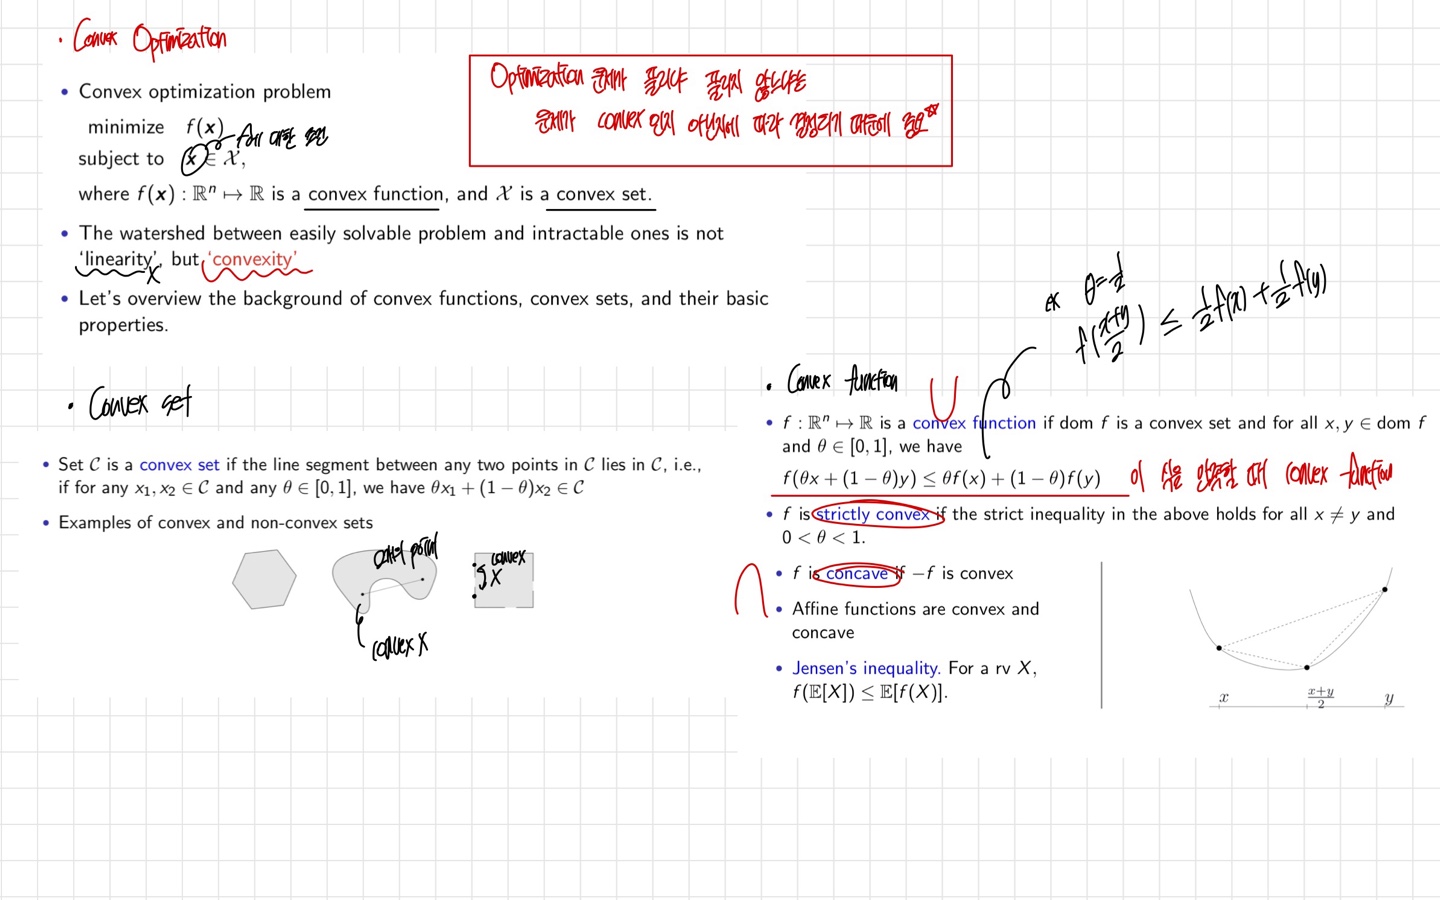 · Convex Optimization
• Convex optimization problem
minimize f(x)
subject to x ∈ 𝒳,
에 대한 조건
where f(x) : ℝⁿ ↦ ℝ is a convex function, and 𝒳 is a convex set.
• The watershed between easily solvable problem and intractable ones is not
‘linearity’, but ‘convexity’
X
• Let’s overview the background of convex functions, convex sets, and their basic
properties.
Optimization 문제가 풀리냐 풀리지 않느냐는
문제가 convex 인지 아닌지에 따라 결정되기 때문에 중요☆
· Convex set
• Set 𝒞 is a convex set if the line segment between any two points in 𝒞 lies in 𝒞, i.e.,
if for any x₁, x₂ ∈ 𝒞 and any θ ∈ [0, 1], we have θx₁ + (1 − θ)x₂ ∈ 𝒞
• Examples of convex and non-convex sets
point
convex X
convex
X
ex θ=½
f(x+y/2) ≤ ½f(x)+½f(y)
· Convex function
• f : ℝⁿ ↦ ℝ is a convex function if dom f is a convex set and for all x, y ∈ dom f
and θ ∈ [0, 1], we have
f(θx + (1 − θ)y) ≤ θf(x) + (1 − θ)f(y) 이 식을 만족할 때 convex function
• f is strictly convex if the strict inequality in the above holds for all x ≠ y and
0 < θ < 1.
• f is concave if −f is convex
• Affine functions are convex and
concave
• Jensen’s inequality. For a rv X,
f(𝔼[X]) ≤ 𝔼[f(X)].
x x+y/2 y